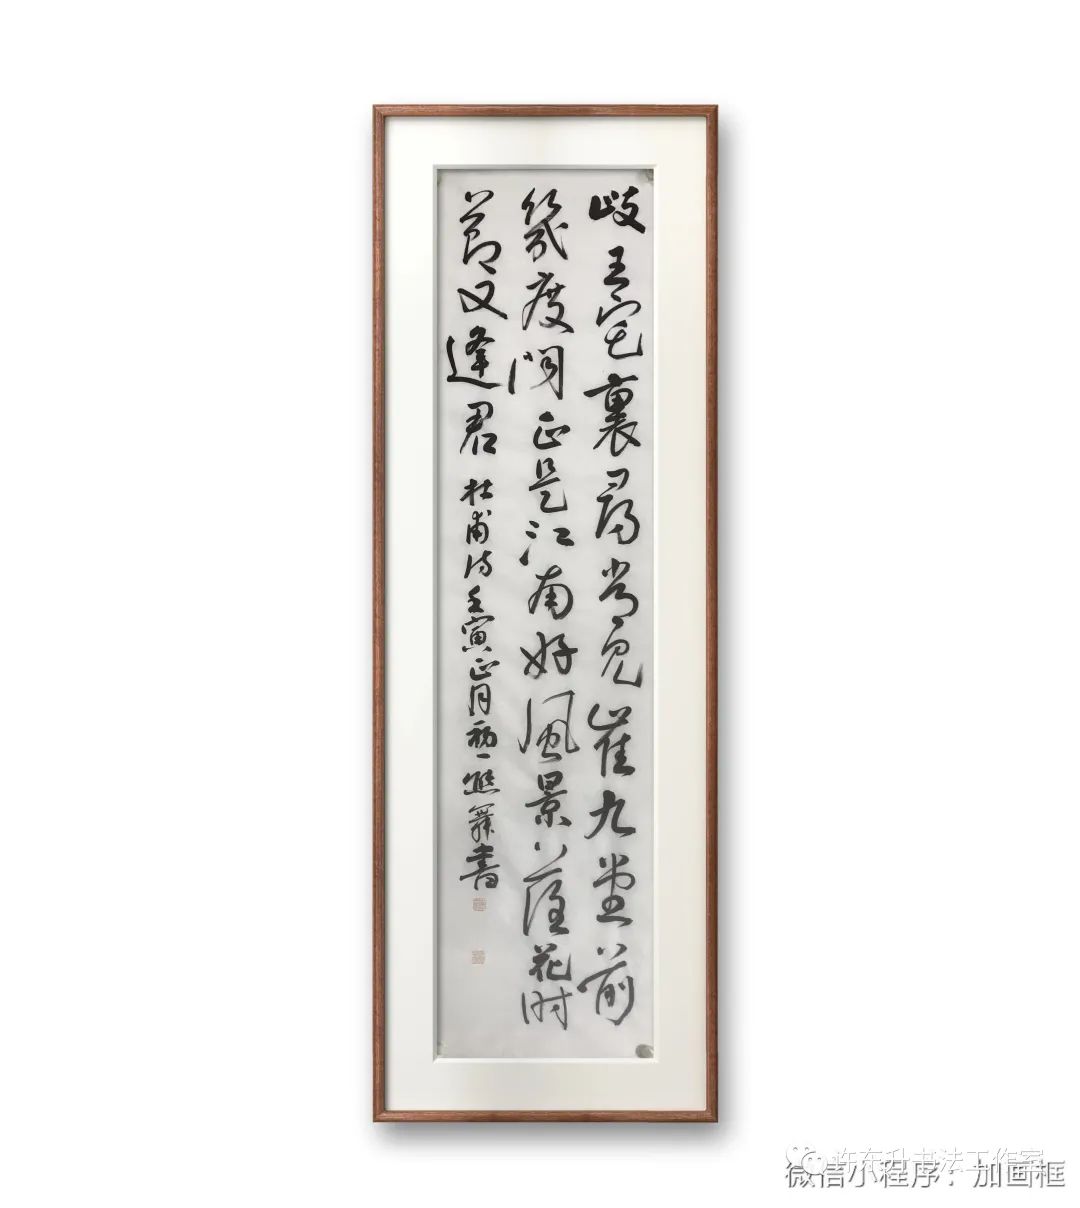 歧王宅裏尋常見崔九堂前
幾度聞正是江南好風景落花時
節又逢君 杜甫詩壬寅正月初一書
许东升书法工作室
微信小程序：加画框